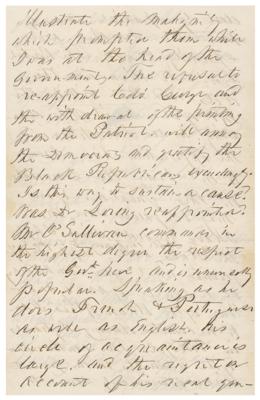 illustrate the malignity
which prompted them while
I was at the head of the
Government. The refusal to
re-appoint Col. George and
the withdrawal of the printing
from the Patriot, will annoy
the Democrats and gratify the
Black Republicans exceedingly.
Is this way to sustain a cause?
Was Dr Loring reappointed?
Mr O'Sullivan commands in
the highest degree the respect
of the Govt here, and is unusually
popular. Speaking as he
does French & Portuguese
as well as English, his
circle of acquaintance is
large, and the
account of his